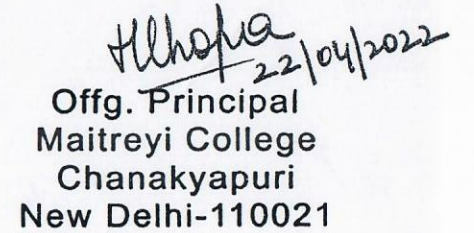 22/04/2022
Offg. Principal
Maitreyi College
Chanakyapuri
New Delhi-110021